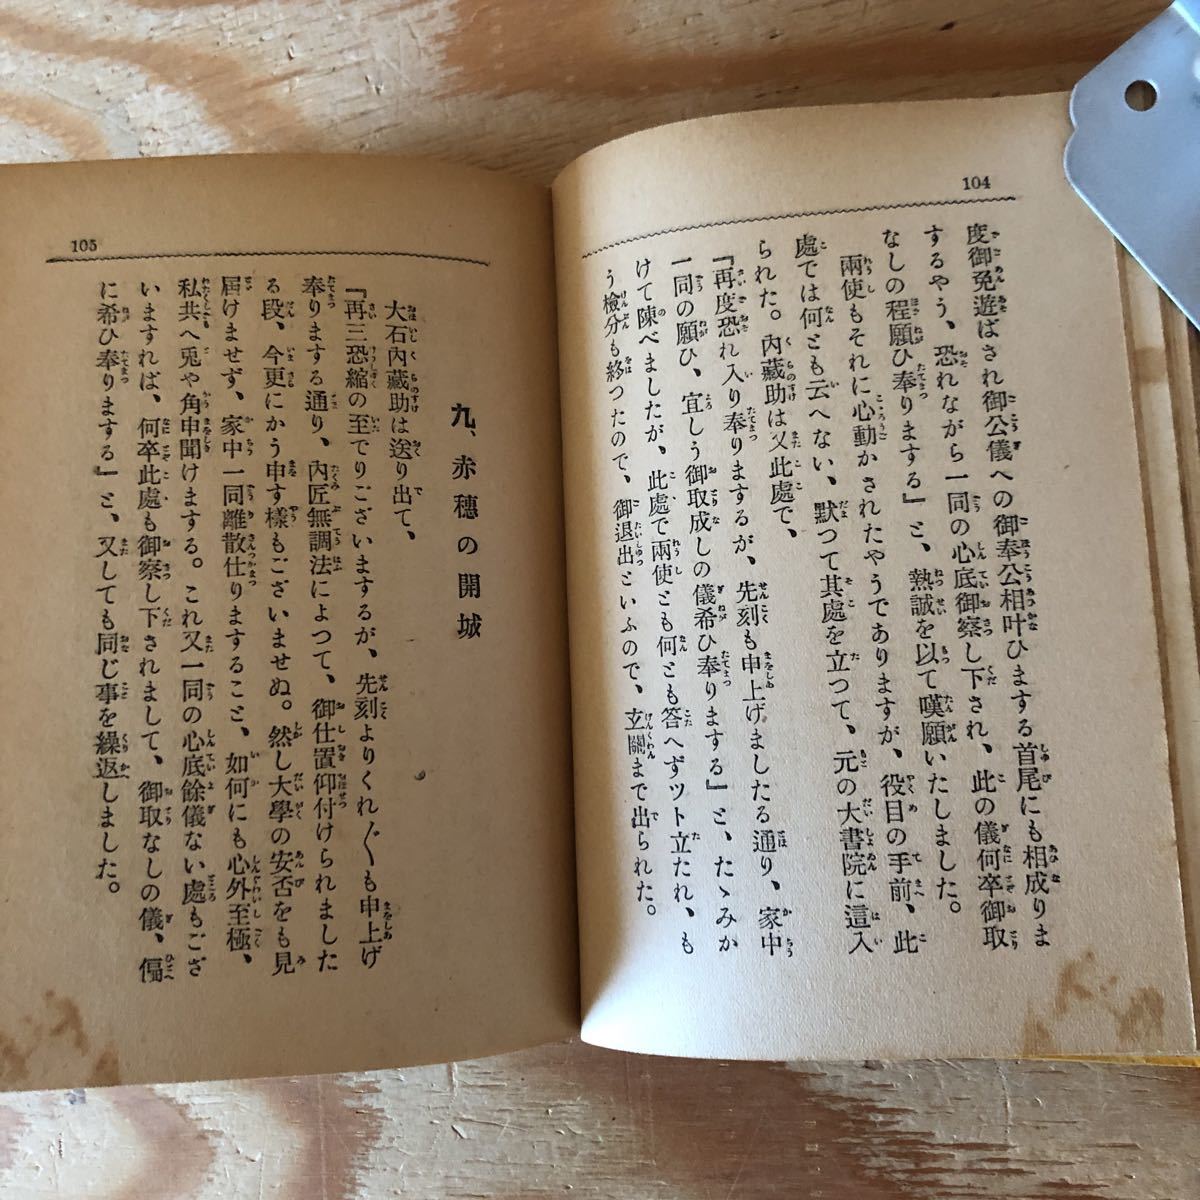 104
度御免遊ばされ御公儀への御奉公相叶ひまする首尾にも相成りま
するやう、恐れながら一同の心底御察し下され、此の儀何卒御取
なしの程願ひ奉りまする』と、熱誠を以て嘆願いたしました。
兩使もそれに心動かされたやうでありますが、役目の手前、此
處では何とも云へない、默つて其處を立つて、元の大書院に這入
られた。內藏助は又此處で、
『再度恐れ入り奉りまするが、先刻も申上げましたる通り、家中
一同の願ひ、宜しう御取成しの儀希ひ奉りまする』と、たゝみか
けて陳べましたが、此處で兩使とも何とも答へずツト立たれ、も
う檢分も終つたので、御退出といふので、玄關まで出られた。
105
九、赤穗の開城
大石內藏助は送り出て、
『再三恐縮の至でりございまするが、先刻よりくれ〲も申上げ
奉りまする通り、內匠無調法によつて、御仕置仰付けられました
る段、今更にかう申す樣もございませぬ。然し大學の安否をも見
屆けませず、家中一同離散仕りますること、如何にも心外至極、
私共へ兎や角申聞けまする。これ又一同の心底餘儀ない處もござ
いますれば、何卒此處も御察し下されまして、御取なしの儀、偏
に希ひ奉りまする』と、又しても同じ事を繰返しました。